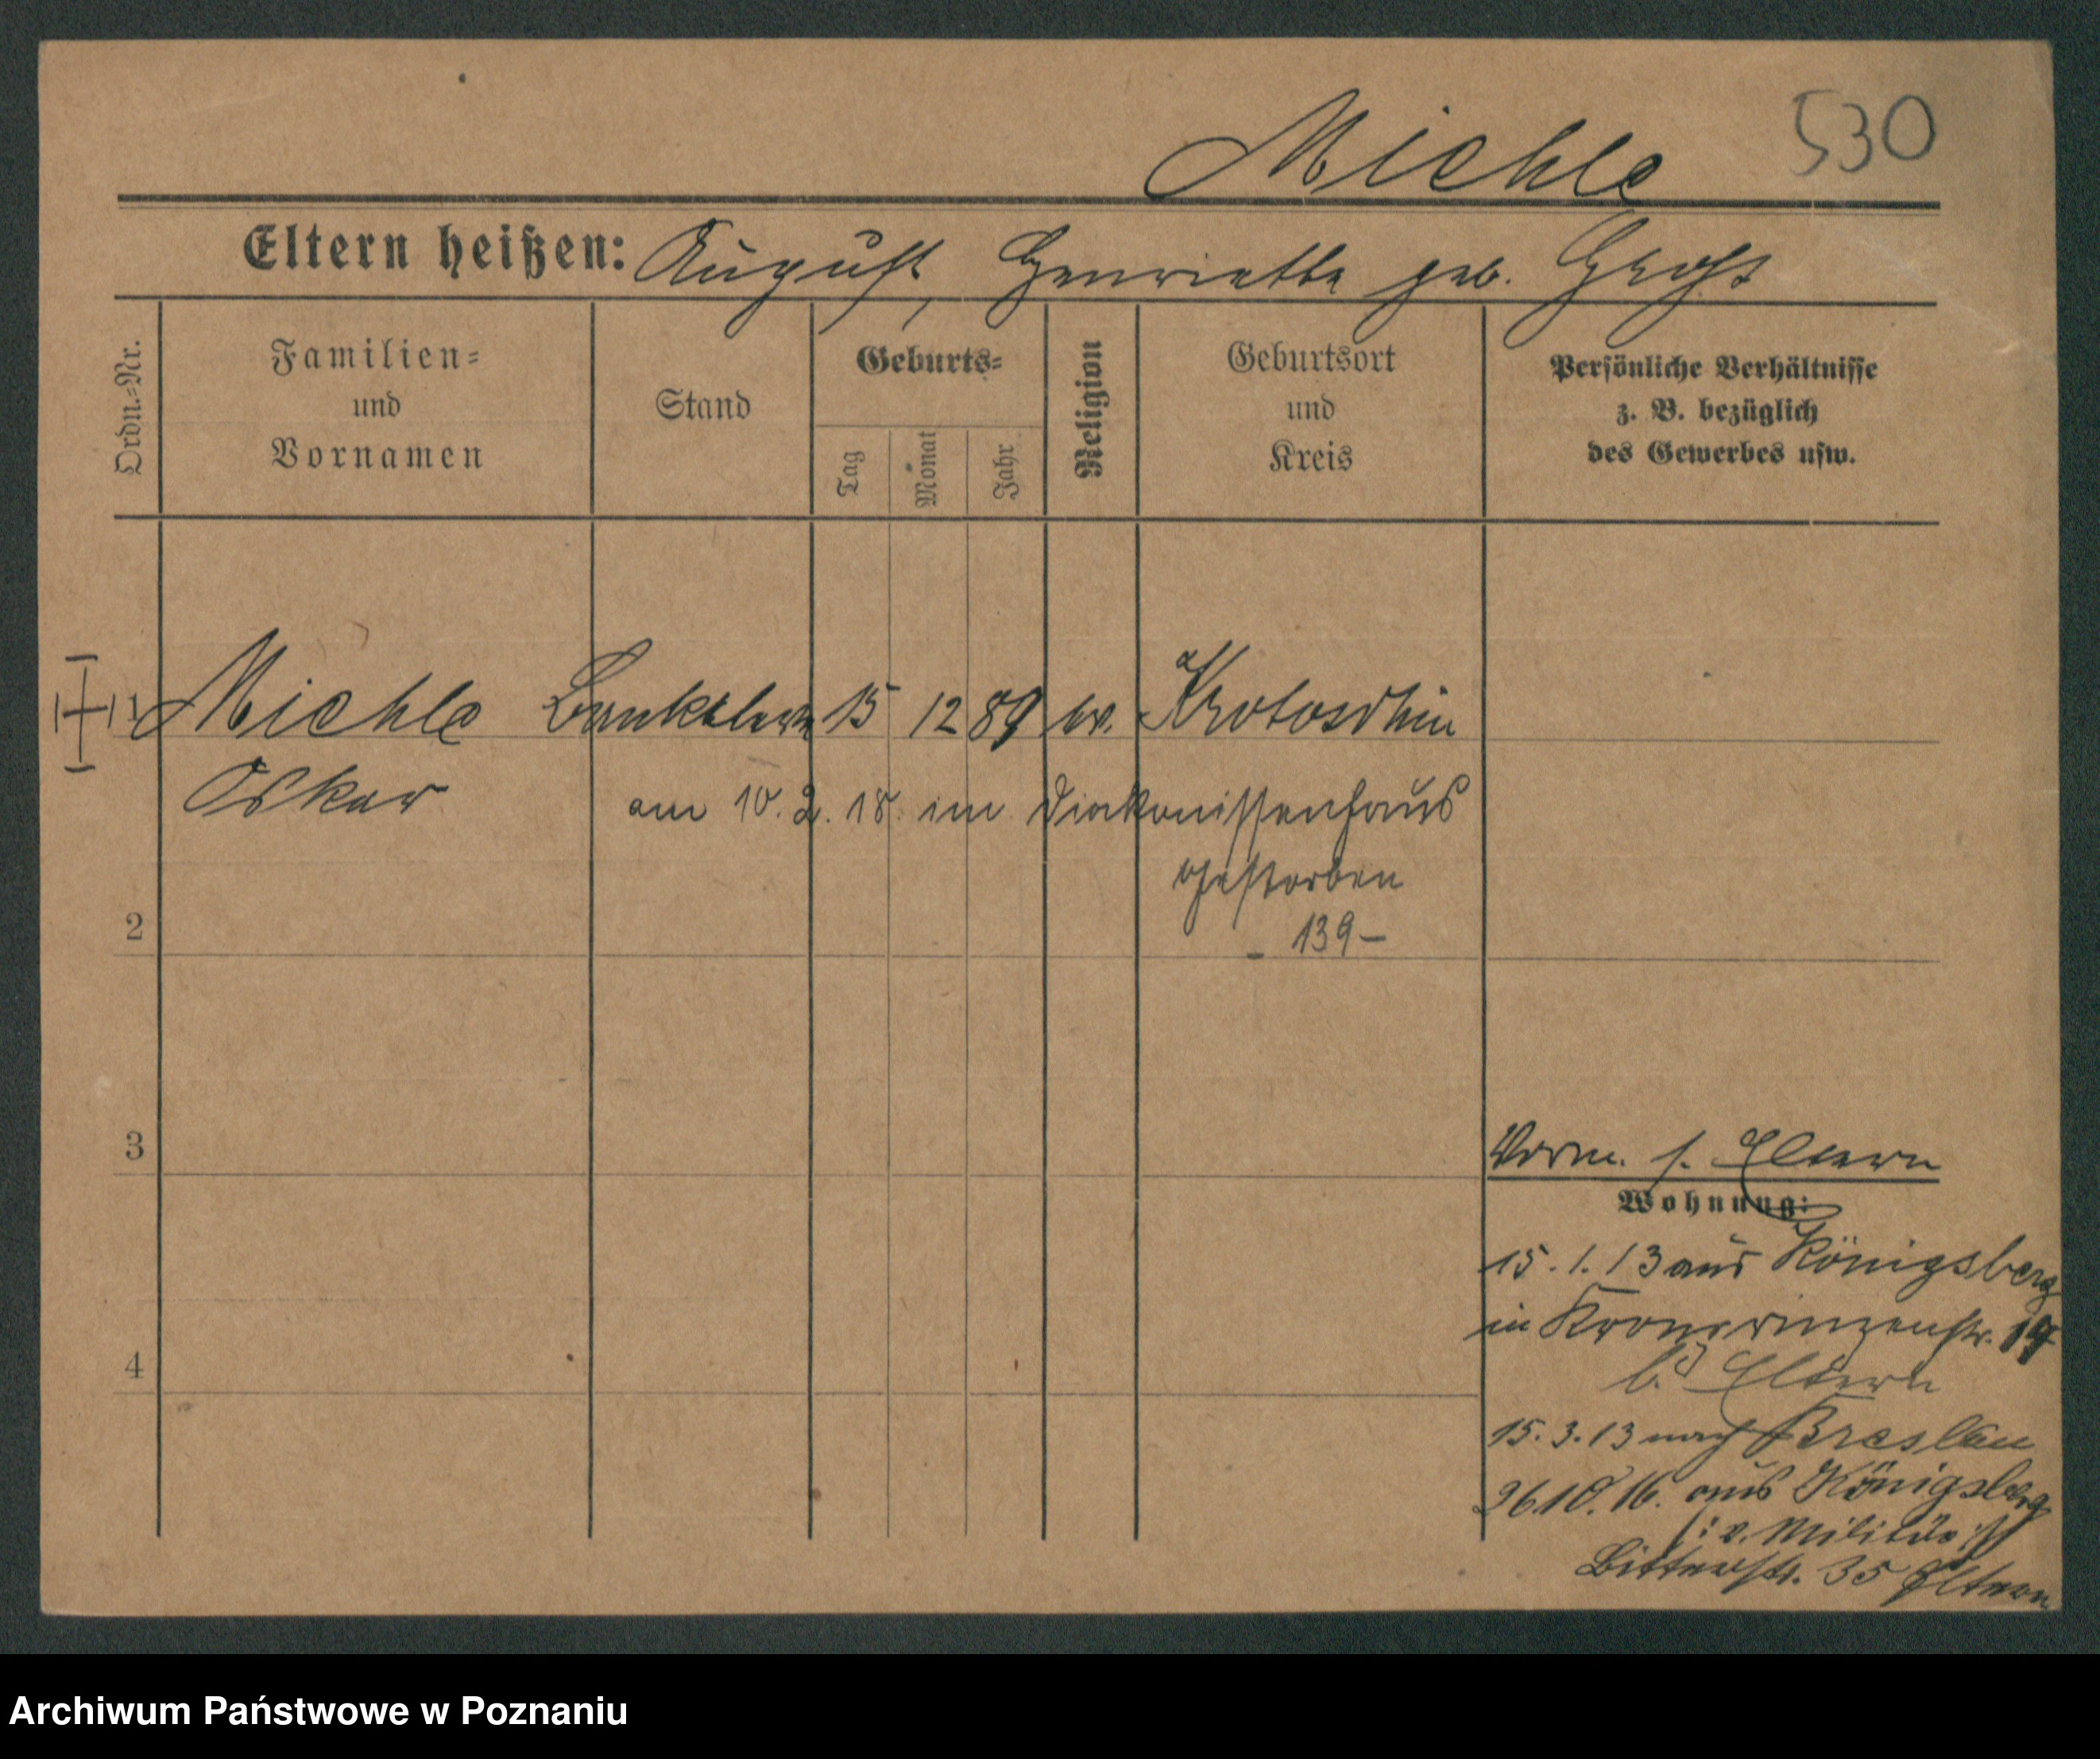 530
Miehle
Eltern heißen: August, Henriette geb. Groß
Ordn.-Nr.
Familien- und Vornamen
Stand
Geburts-
Tag
Monat
Jahr
Religion
Geburtsort und Kreis
Persönliche Verhältnisse z. B. bezüglich des Gewerbes usw.
1 Miehle 15 12 89 ev. Krotoschin
Oskar
am 10.2.18. im Diakonissenhaus
gestorben
2
- 139 -
3
Vorm. s. Eltern
Wohnung:
15.1.13 aus Königsberg
in Kronprinzenstr.
4
b. Eltern
15.3.13 nach Breslau
26.10.16. aus Königsberg
/: v. Militär :/
Bitterstr. 35 Eltern
Archiwum Państwowe w Poznaniu